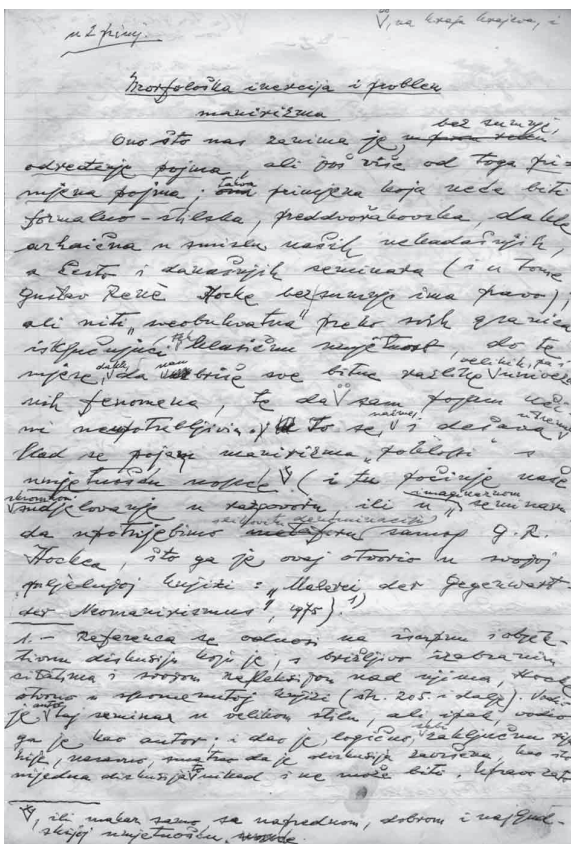 u 2 primj.
, na kraju krajeva, i
Morfološka inercija i problem
manirizma
bez sumnje,
Ono što nas zanima je,
određenje pojma, ali još više od toga pri-
mjena pojma; takva primjena koja neće biti
formalno-stilska, preddvořakovska, dakle
arhaična u smislu naših nekadašnjih,
a često i današnjih seminara (i u tome
Gustav René Hocke bez sumnje ima pravo);
ali niti "neobuhvatna" preko svih granica
isključujući klasičnu umjetnost, do te
mjere, dakle, da nam briše sve bitne razlike
nih fenomena, te da sam pojam uči-
ni neupotrebljivim. to se, naime, i dešava
kad se pojam manirizma "poklopi" s
umjetnošću uopće (i tu počinje naše
skromno sudjelovanje u razgovoru, ili u imaginarnom seminaru
da upotrijebimo metaforu samog G. R.
Hockea, što ga je ovaj otvorio u svojoj
posljednjoj knjizi: "Malerei der Gegenwart
der Neomanirismus", 1975).¹)
1.- Referenca se odnosi na iscrpnu i objek-
tivnu diskusiju koju je, s brižljivo izabranim
citatima i svojom refleksijom nad njima, Hocke
otvorio u spomenutoj knjizi (str. 205 i dalje). Vodio
je taj seminar u velikom stilu, ali ipak, vodio
ga je kao autor; i dao je logično zaključnu rij
nije, naravno, smatrao da je diskusija završena, kao što
nijedna diskusija nikad i ne može biti. Upravo zato
, ili makar samo sa naprednom, dobrom i najljud-
skijom umjetnošću.